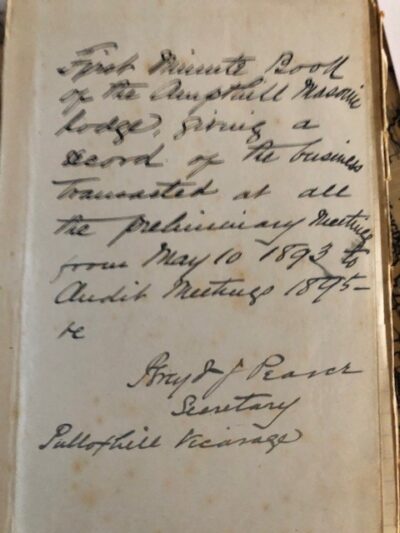 First Minute Book
of the Ampthill Masonic
Lodge, giving a
record of the business
transacted at all
the preliminary Meetings
from May 10 1893 to
Audit Meetings 1895-
J
Secretary
Pulloxhill Vicarage